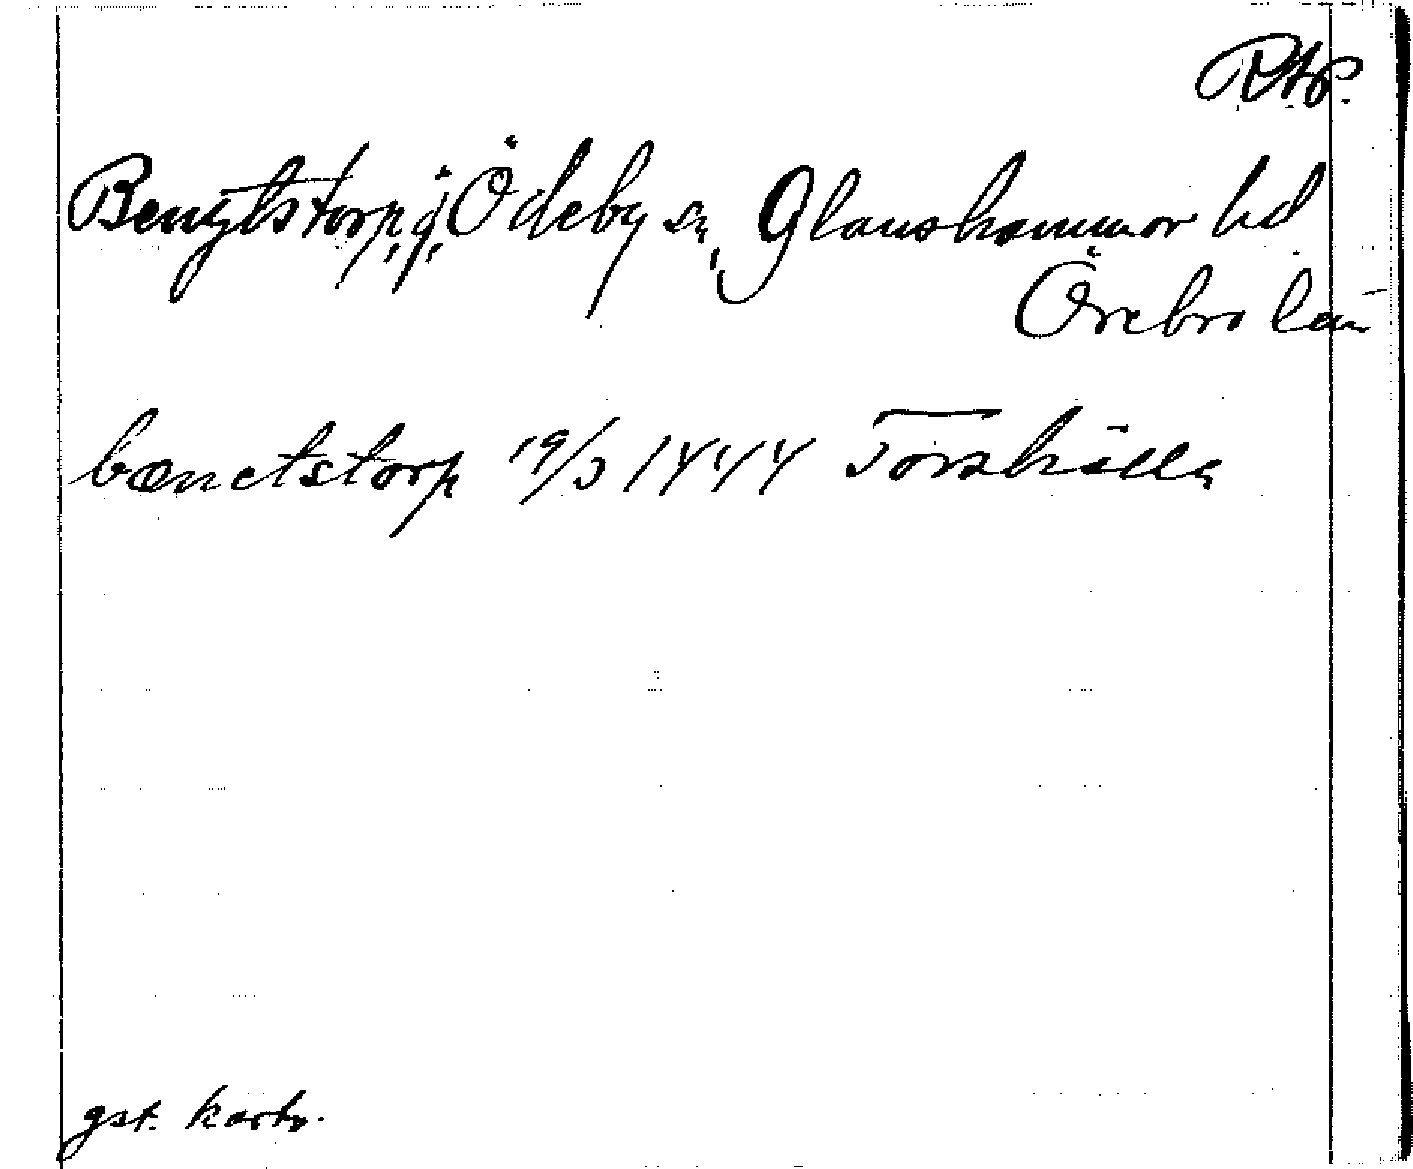 Bengtstorp, g, Ödeby sn, Glanshammar hd
Örebro län
bænctstorp 19/3 1444 Torshälla
gst. kartr.